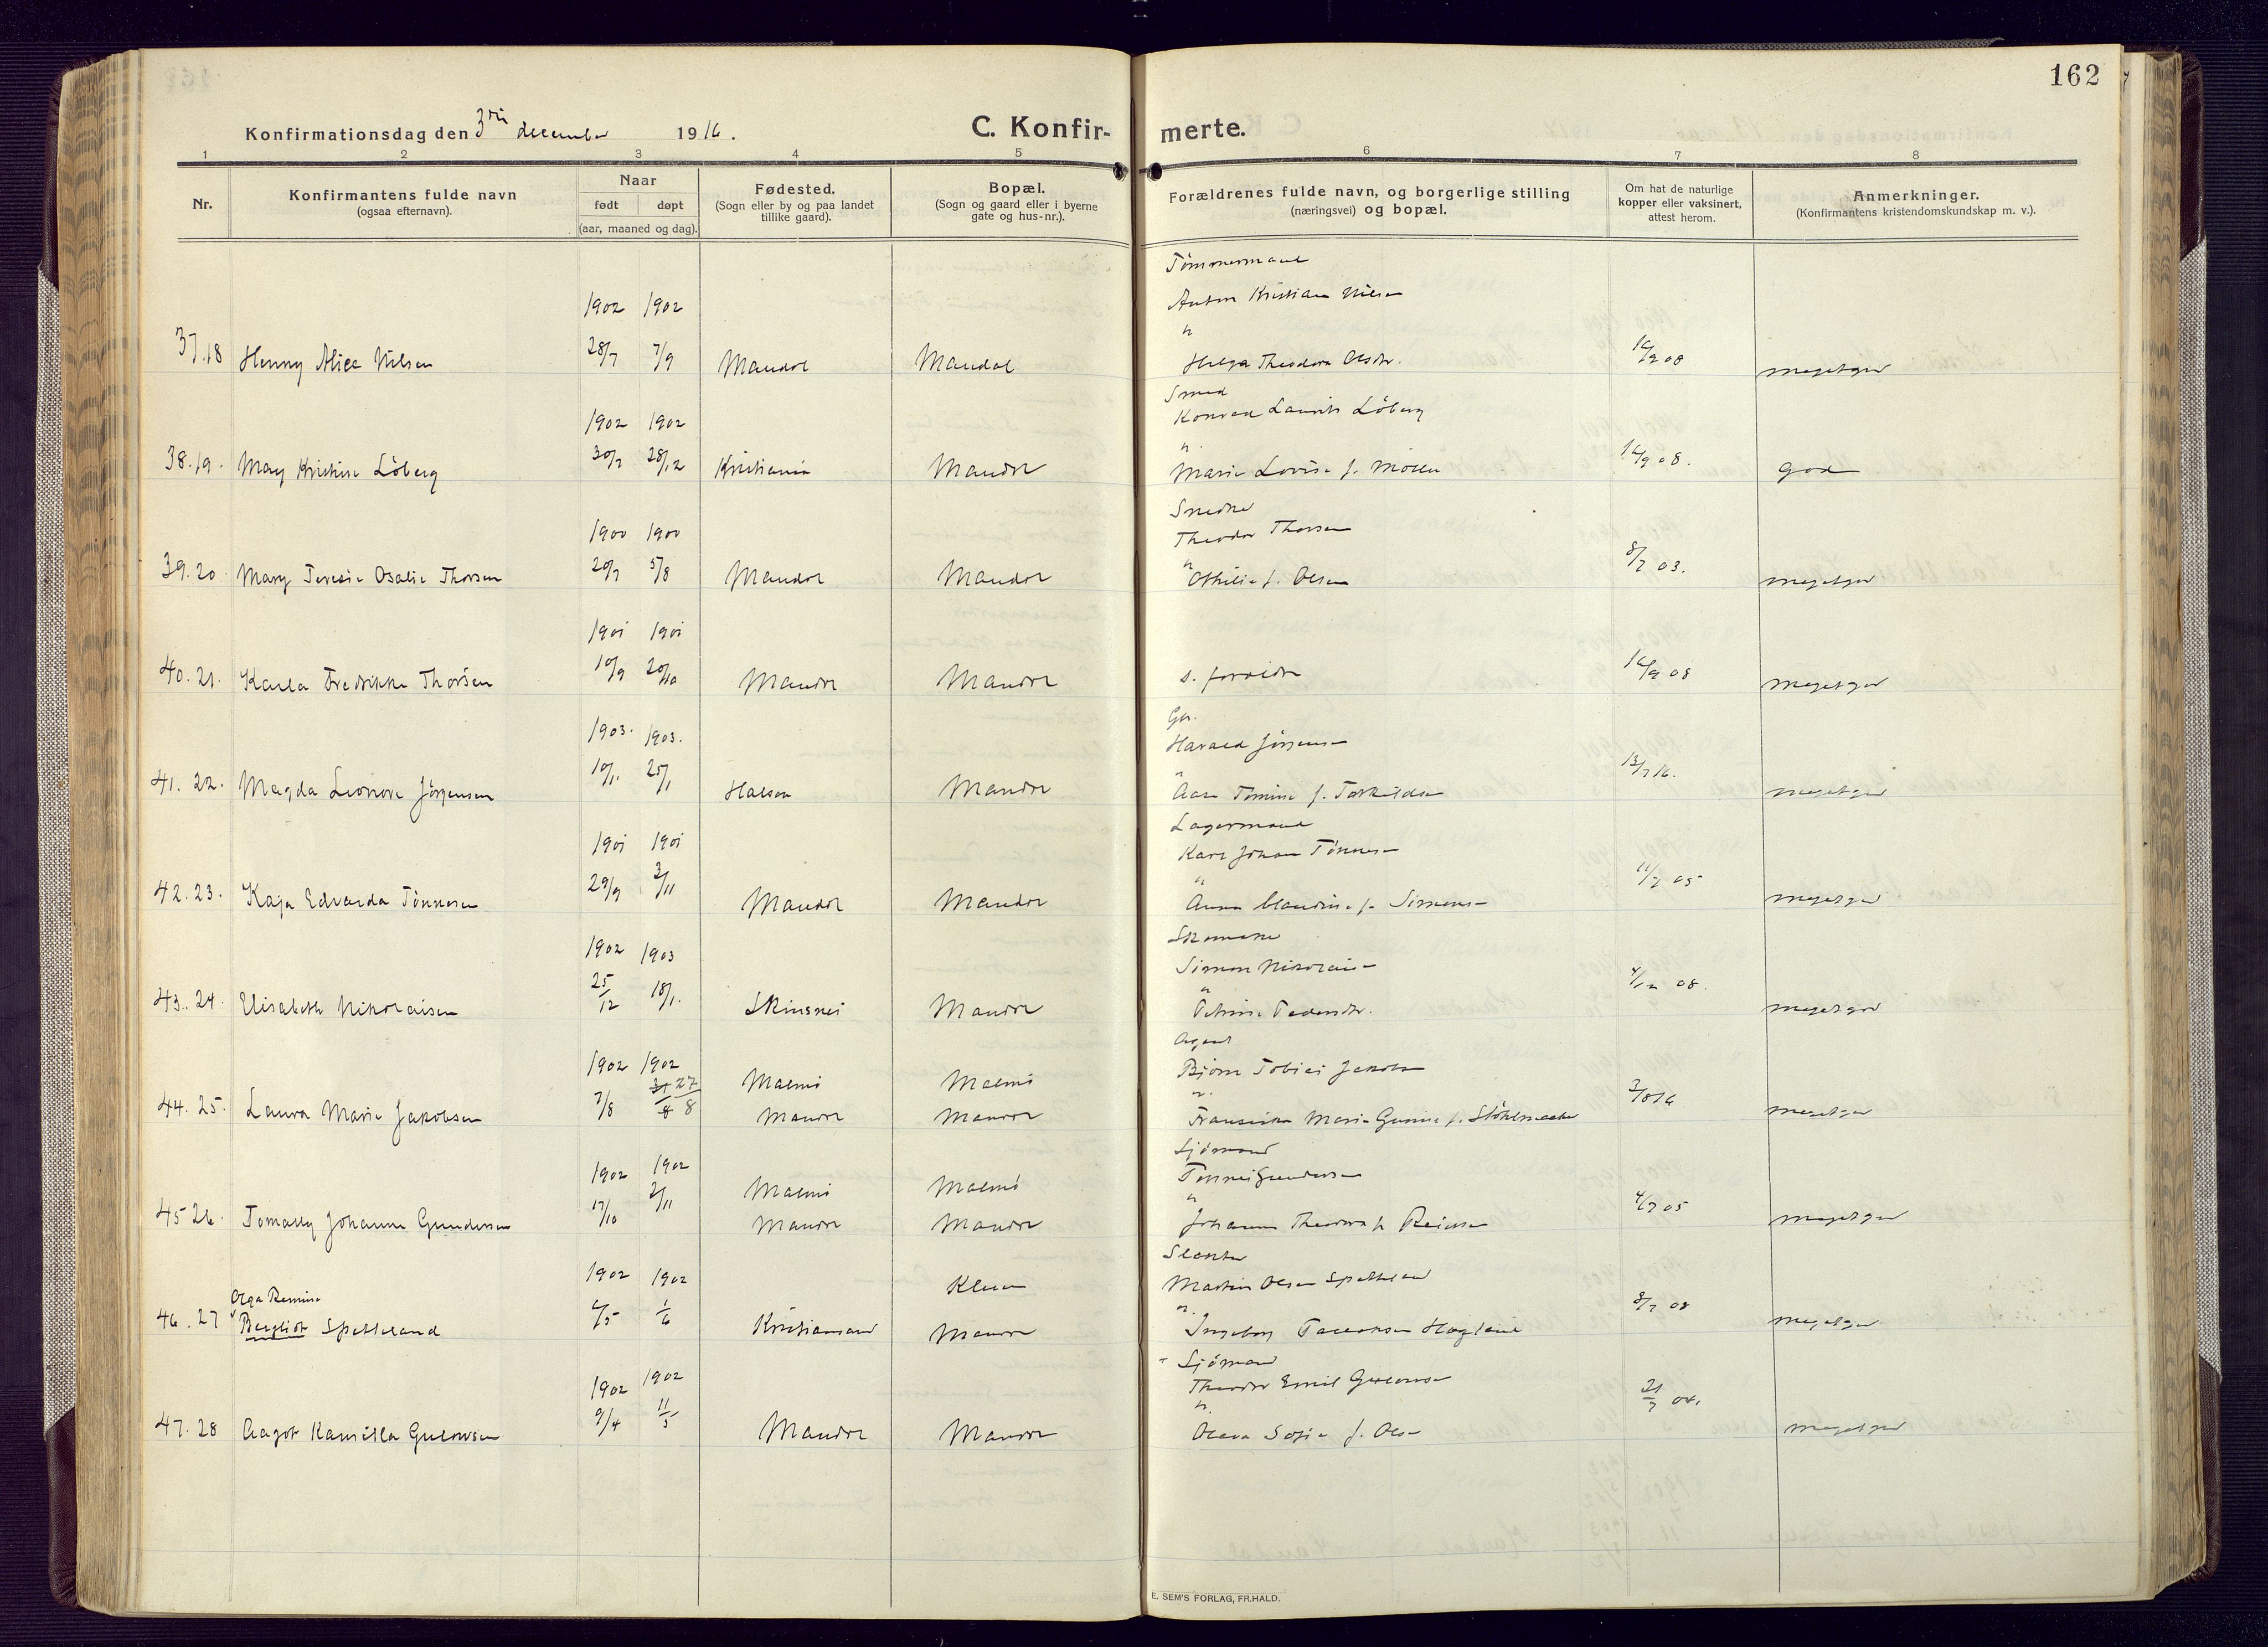 162
Konfirmationsdag den 3die december 1916.
C. Konfir-
merte.
1 2 3 4 5 6 7 8
Nr.
Konfirmantens fulde navn
(ogsaa efternavn).
Naar
født døpt
(aar, maaned og dag).
Fødested.
(Sogn eller by og paa landet
tillike gaard).
Bopæl.
(Sogn og gaard eller i byerne
gate og hus-nr.).
Forældrenes fulde navn, og borgerlige stilling
(næringsvei) og bopæl.
Om hat de naturlige
kopper eller vaksinert,
attest herom.
Anmerkninger.
(Konfirmantens kristendomskundskap m. v.).
Tömmermand
1902 1902 Anton Kristian Nilsen
"
37.18 Henny Alice Nilsen 28/7 7/9 Mandal Mandal Helga Theodora Olsdr. 08 megetgod
Smed
1902 1902 Konrad Laurits Löberg
"
38.19. May Kristine Löberg 30/7 28/12 Kristiania Mandal Marie Lovise f. Möller 08. god
Snedker
1900 1900 Theodor Thorsen
"
39.20 Mary Teresie Osalie Thorsen 20/7 5/8 Mandal Mandal Othilie f. Olsen 8/7 03. megetgod
1901 1901
40.21. Karla Fredrikke Thorsen 10/9 20/10 Mandal Mandal s. foreldre 08 megetgod
1903. 1903. Harald Jörgensen
"
41.22. Magda Leonore Jörgensen 10/1. 25/1 Halsen Mandal Aase Tomine f. Torkildsen 13/7 16. megetgod
Lagermand
1901 1901 Karl Johan Tönnesen
"
42.23. Kaja Edvarda Tönnesen 29/9 3/11 Mandal Mandal Anna Claudine f. Simonsen 11/7 05 megetgod
Skomaker
1902 1903 Simon Nikolaisen
"
43.24. Elisabeth Nikolaisen 25/12 18/1. Skinsnes Mandal Petrine Pedersdtr. 08. megetgod
Agent
1902 1902 Malmö Malmö Björn Tobias Jakobsen
"
44.25. Laura Marie Jakobsen 7/8 27/8 Mandal Mandal Fransiska Marie Gunine f. 3/8 16 megetgod
Sjömand
1902 1902 Malmö Malmö Tönnes Gundersen
"
45 26. Tomally Johanne Gundersen 17/10 2/11 Mandal Mandal Johanne Theodora f. 4/7 05 megetgod
Slakter
1902 1902 Kleven Martin Olsen Spetteland
Olga Remine
"
46.27 Bergliot Spetteland 6/5 1/6 Kristiansand Mandal Ingeborg 8/7 08 megetgod
Sjömand
1902 1902 Theodor Emil Gulowsen
"
47.28 Aagot Kamilla Gulowsen 9/4 11/5 Mandal Mandal Olava Sofie f. Olsen 21/7 04. megetgod
E. SEM'S FORLAG, FR.HALD.